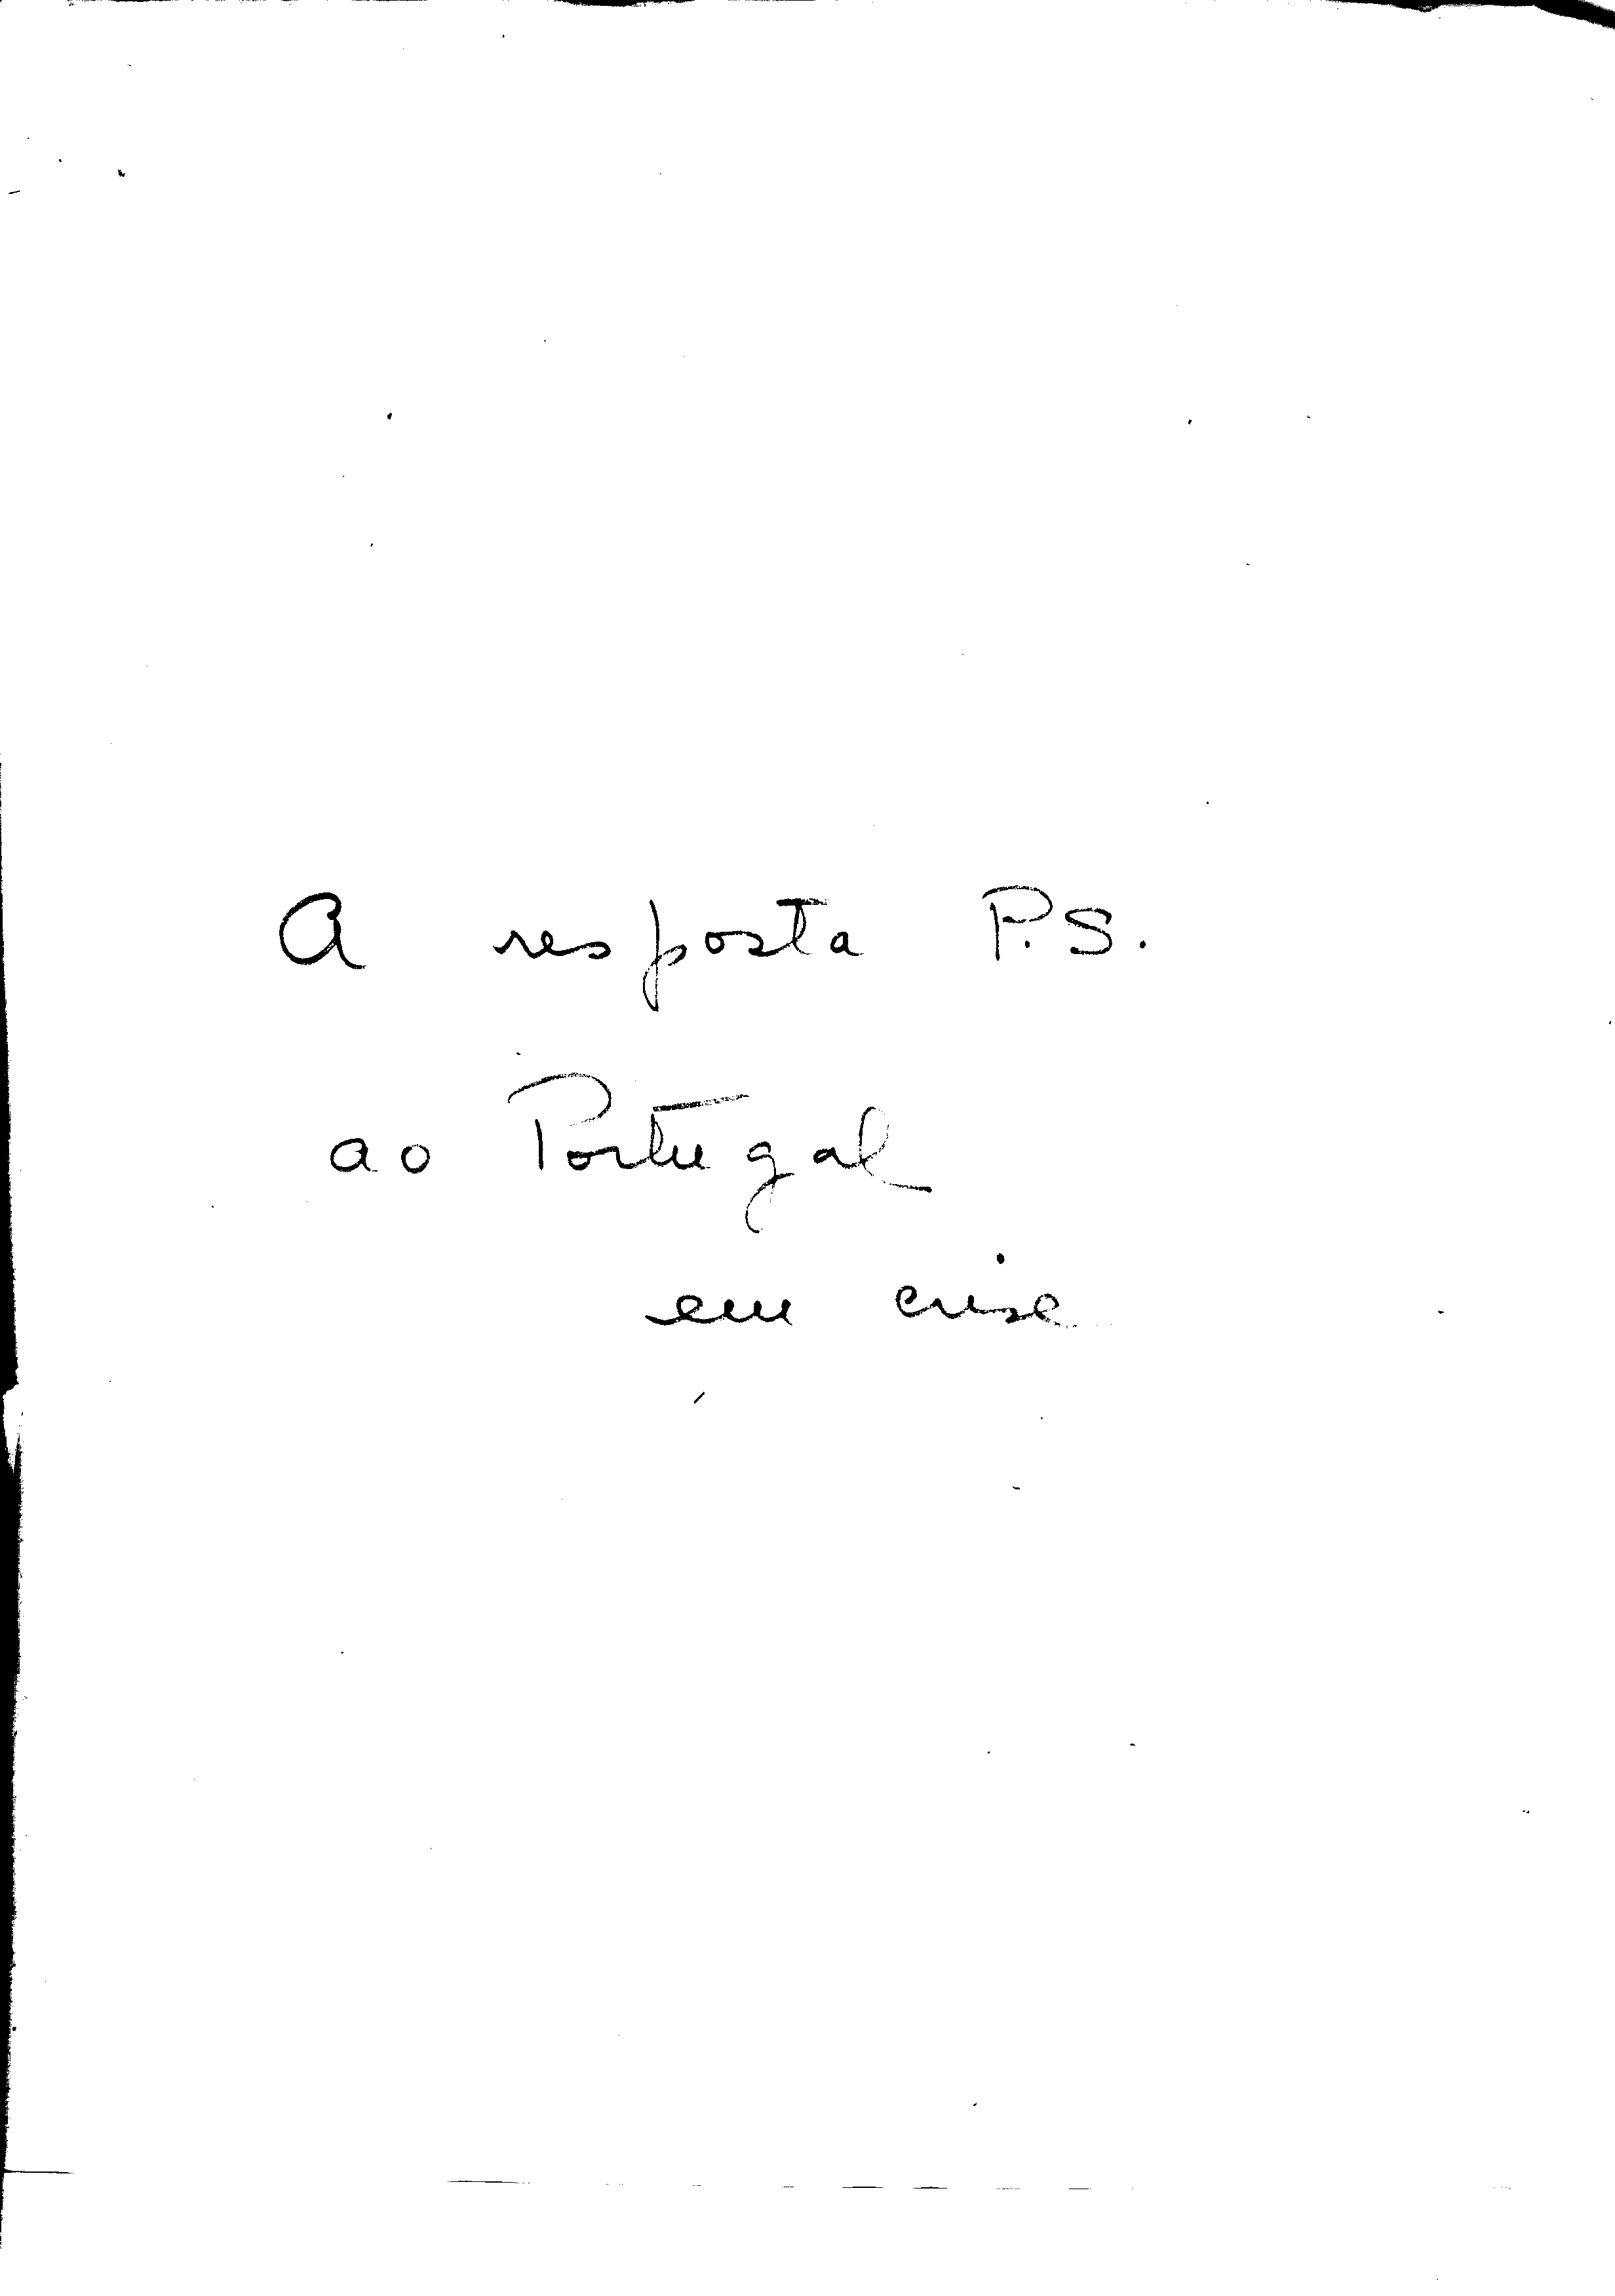 A resposta P.S.
ao Portugal
em crise